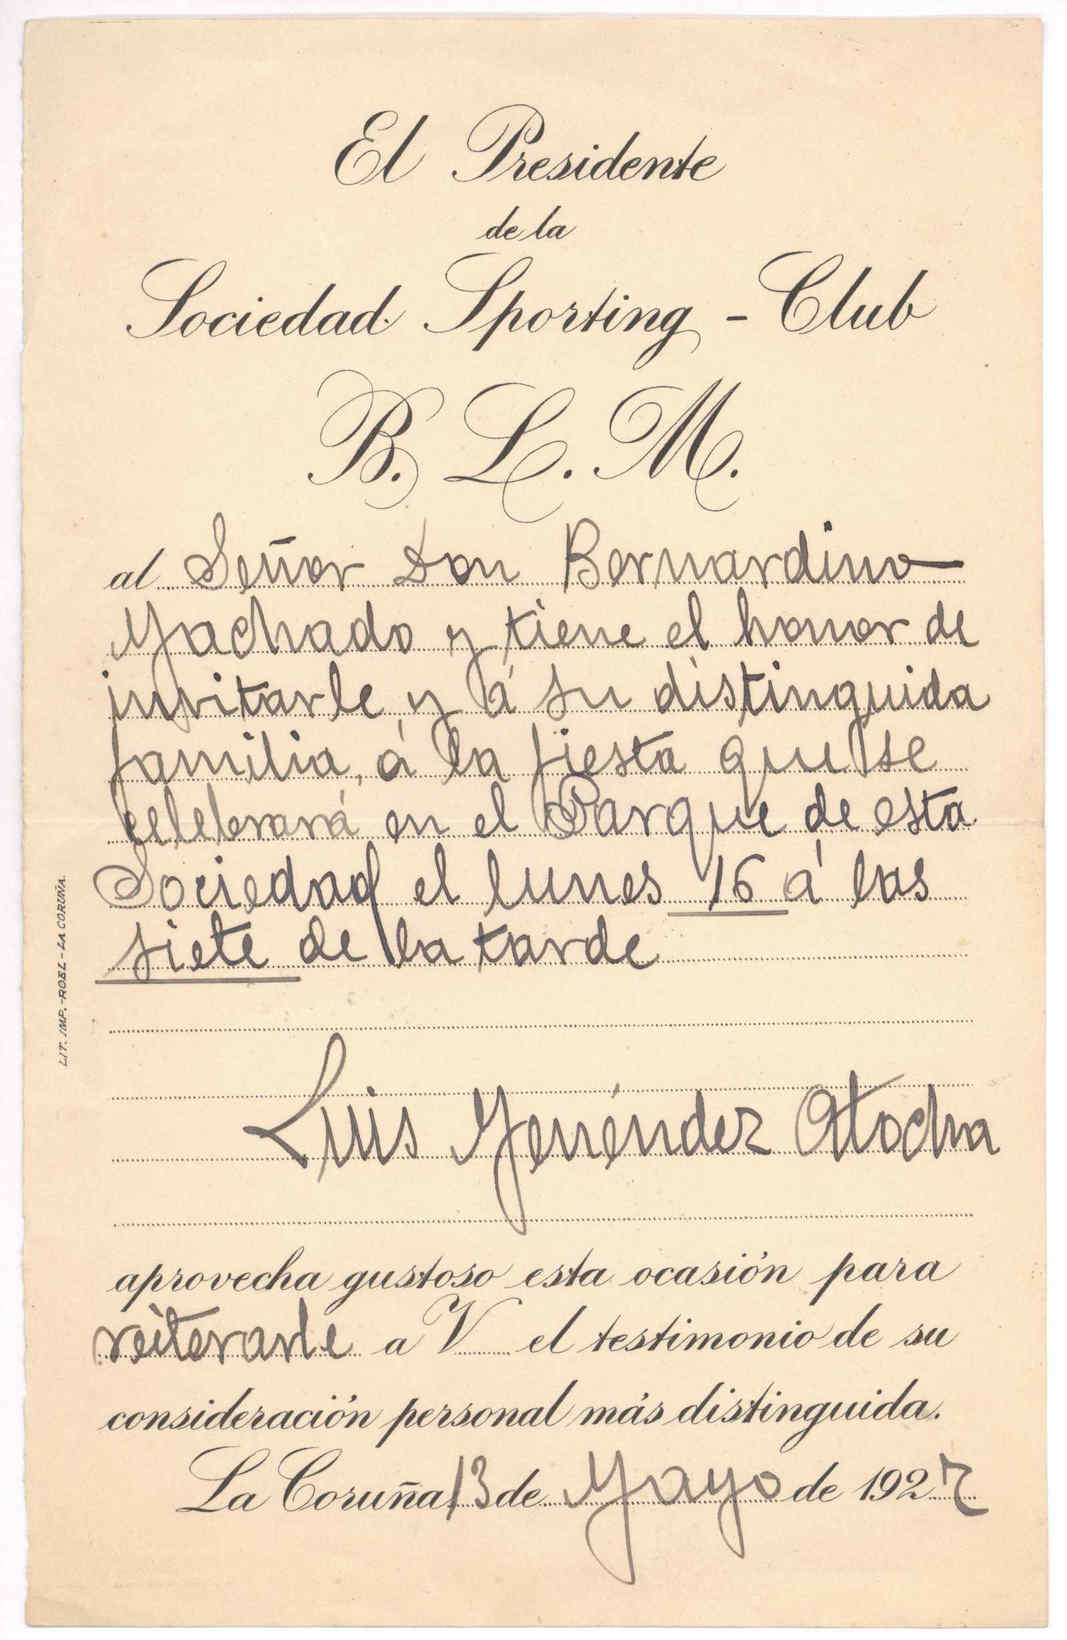 El Presidente
de la
Sociedad Sporting - Club
B. L. M.
al Señor Don Bernardino
Machado y tiene el honor de
invitarle, y á su distinguida
familia, á la fiesta que se
celebrará en el Parque de esta
Sociedad el lunes 16 á las
siete de la tarde
Luis Menéndez Atocha
aprovecha gustoso esta ocasión para
reiterarle a V el testimonio de su
consideración personal más distinguida.
La Coruña 13 de Mayo de 1927
LIT. IMP.-ROEL-LA CORUÑA.